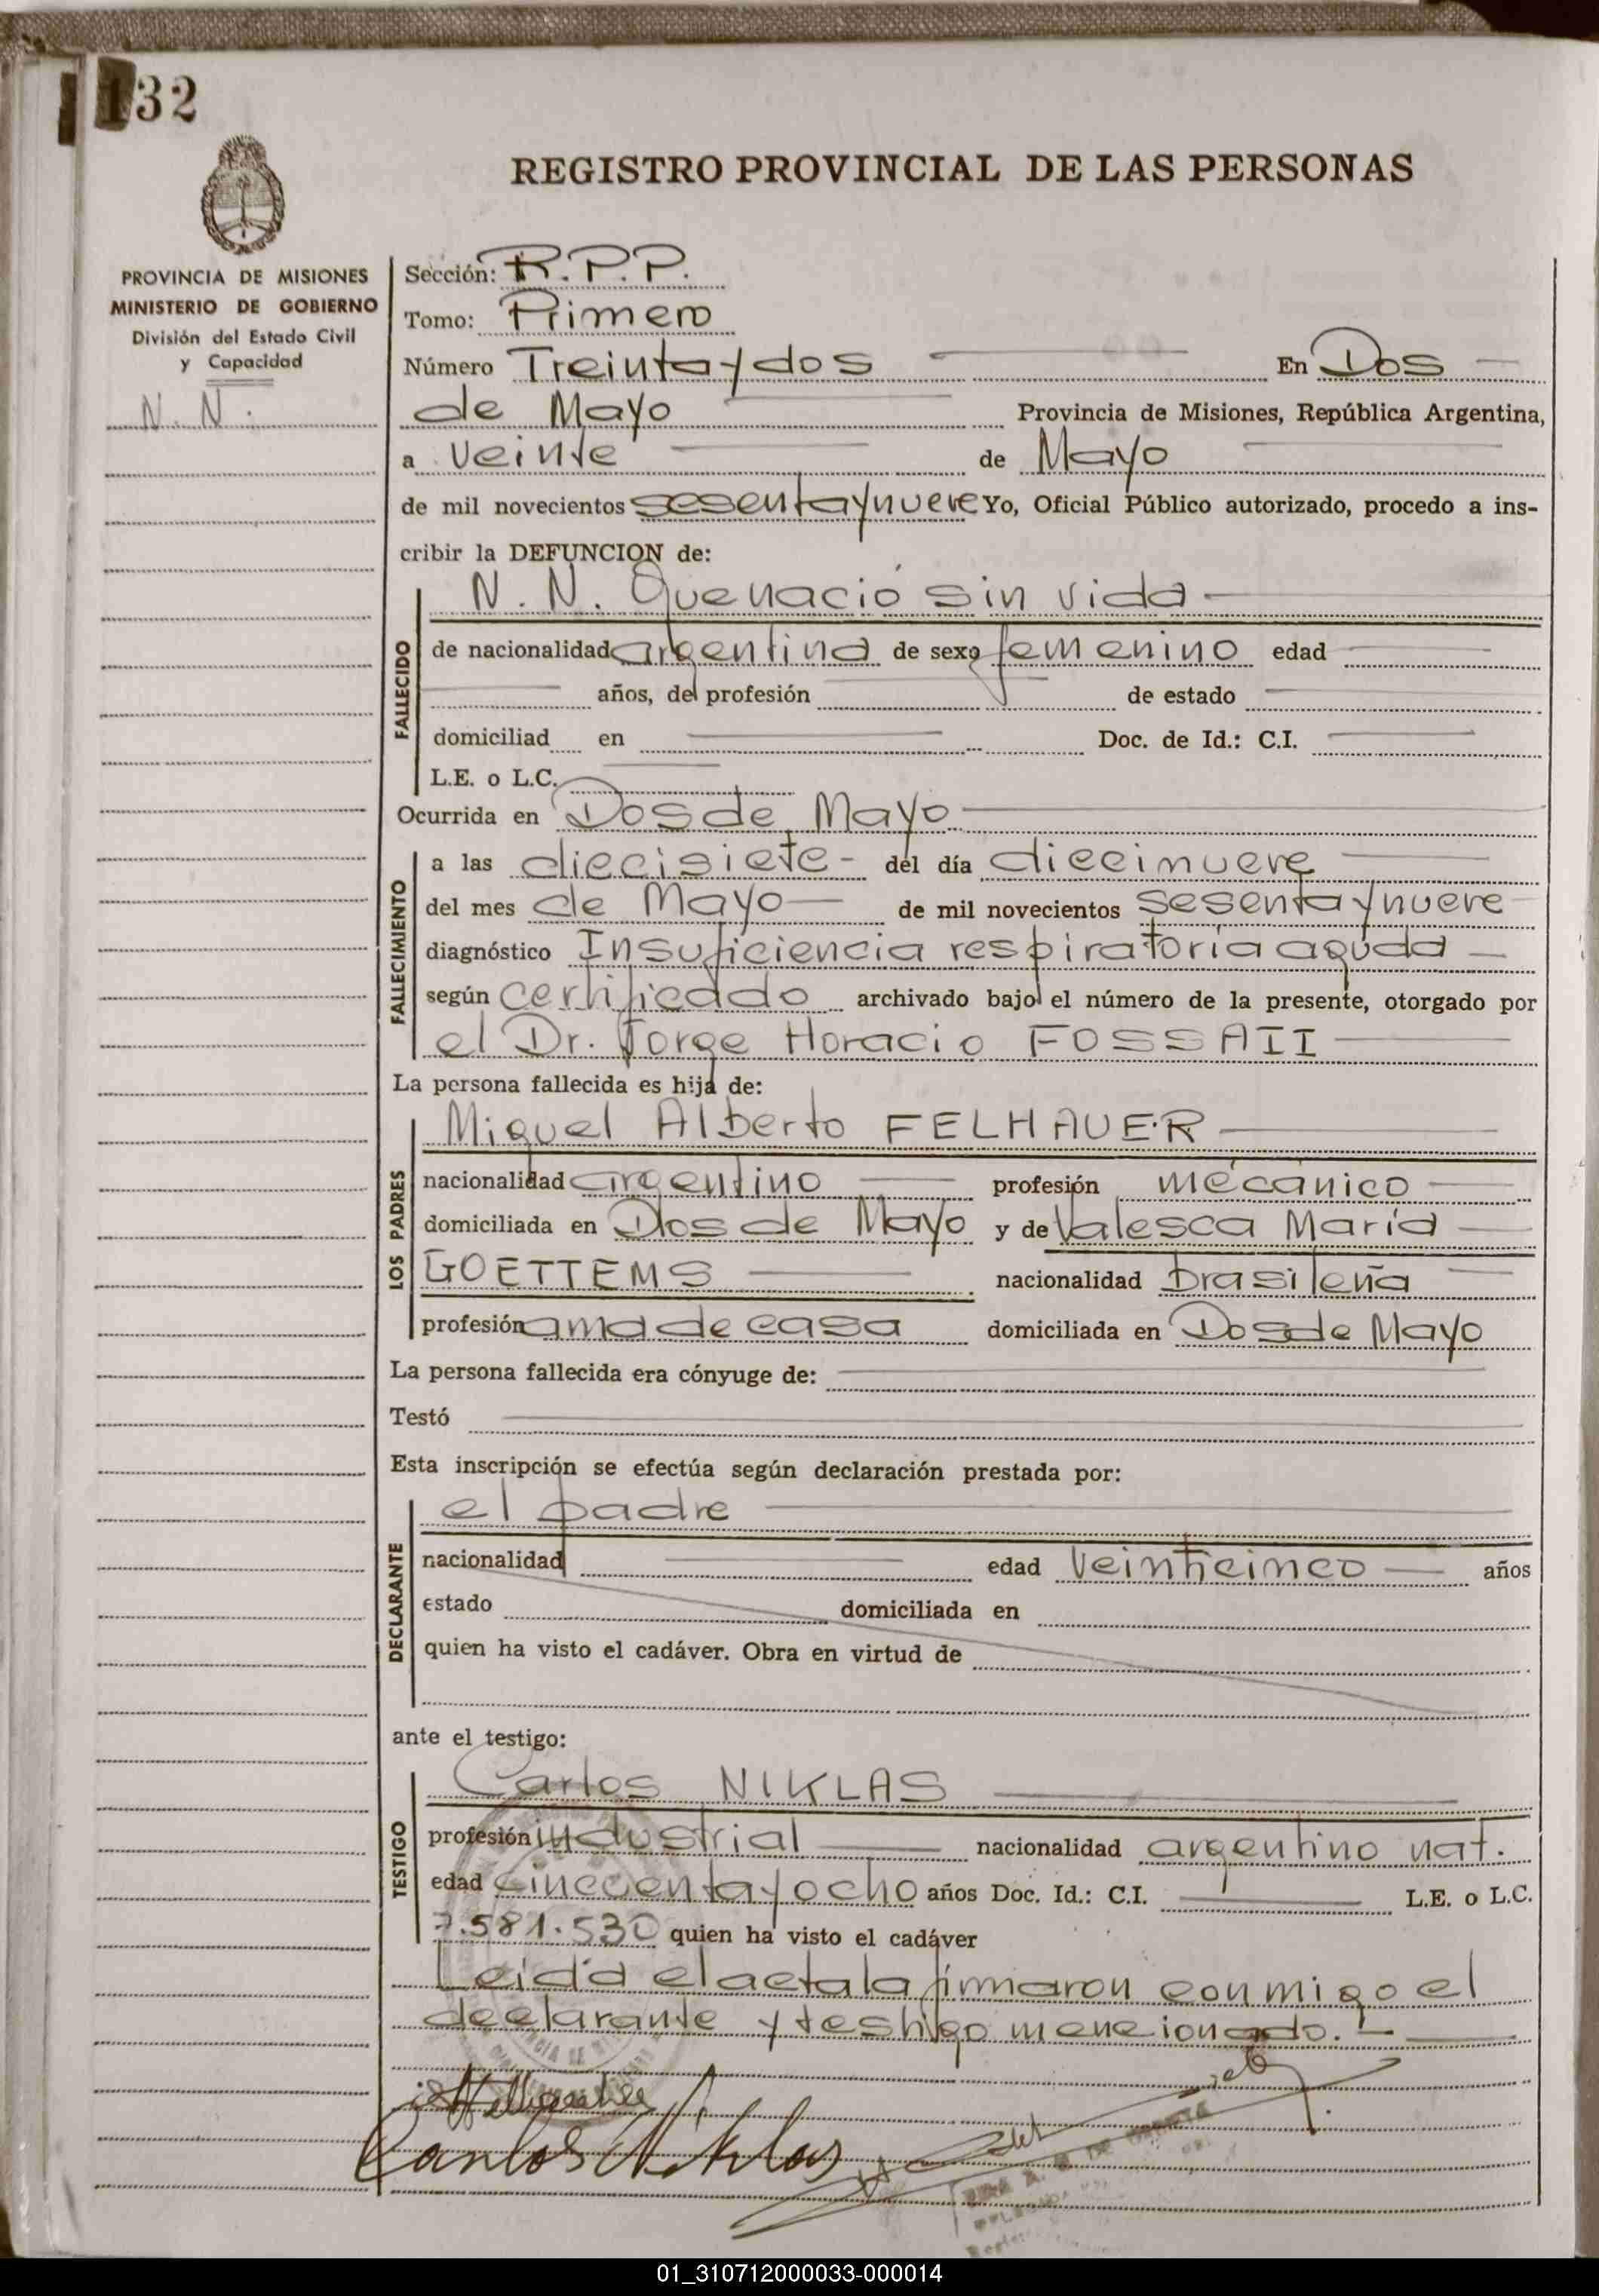 32
REGISTRO PROVINCIAL DE LAS PERSONAS
PROVINCIA DE MISIONES
MINISTERIO DE GOBIERNO
División del Estado Civil
y Capacidad
N. N.
Sección: R.P.P.
Tomo: Primero
Número Treinta y dos En Dos
de Mayo Provincia de Misiones, República Argentina,
a veinte de Mayo
de mil novecientos sesenta y nueve Yo, Oficial Público autorizado, procedo a ins-
cribir la DEFUNCION de:
FALLECIDO
N. N. Que nació sin vida
de nacionalidad argentina de sexo femenino edad
años, de profesión de estado
domiciliad en Doc. de Id.: C.I.
L.E. o L.C.
Ocurrida en Dos de Mayo
FALLECIMIENTO
a las diecisiete - del día diecinueve
del mes de Mayo de mil novecientos sesenta y nueve
diagnóstico Insuficiencia respiratoria aguda
según certificado archivado bajo el número de la presente, otorgado por
el Dr. Jorge Horacio FOSSATI
La persona fallecida es hija de:
LOS PADRES
Miguel Alberto FELHAUER
nacionalidad argentino profesión mecánico
domiciliada en Dos de Mayo y de Valesca María
GOETTEMS nacionalidad brasileña
profesión ama de casa domiciliada en Dos de Mayo
La persona fallecida era cónyuge de:
Testó
Esta inscripción se efectúa según declaración prestada por:
DECLARANTE
el padre
nacionalidad edad veinticinco años
estado domiciliada en
quien ha visto el cadáver. Obra en virtud de
ante el testigo:
TESTIGO
Carlos NIKLAS
profesión industrial nacionalidad argentino nat.
edad cincuenta y ocho años Doc. Id.: C.I. L.E. o L.C.
7.581.530 quien ha visto el cadáver
Leida el acta la firmaron conmigo el
declarante y testigo mencionado.-
Carlos Niklas
01_310712000033-000014